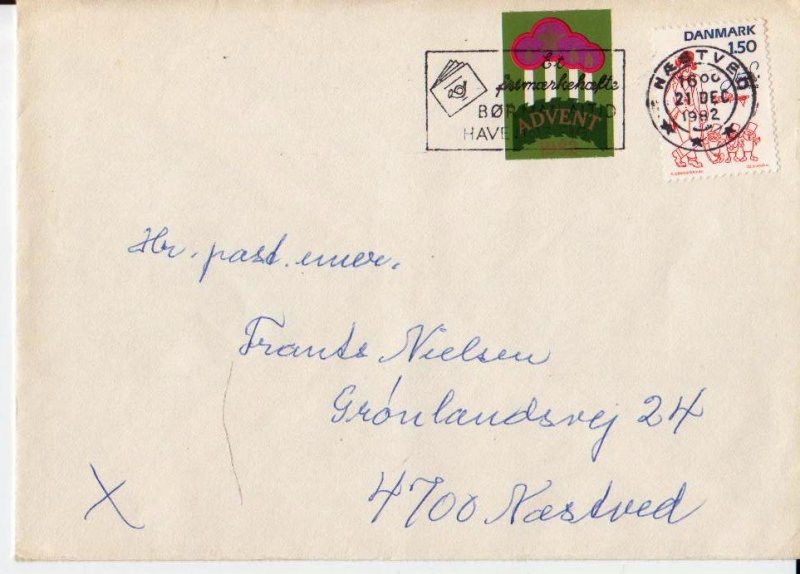 Et
frimærkehæfte
BØR
HAVE
ADVENT
DANMARK
1.50
NÆSTVED
1600
21 DEC
1982
Hr. past. emer.
Frants Nielsen
Grønlandsvej 24
4700 Næstved
X